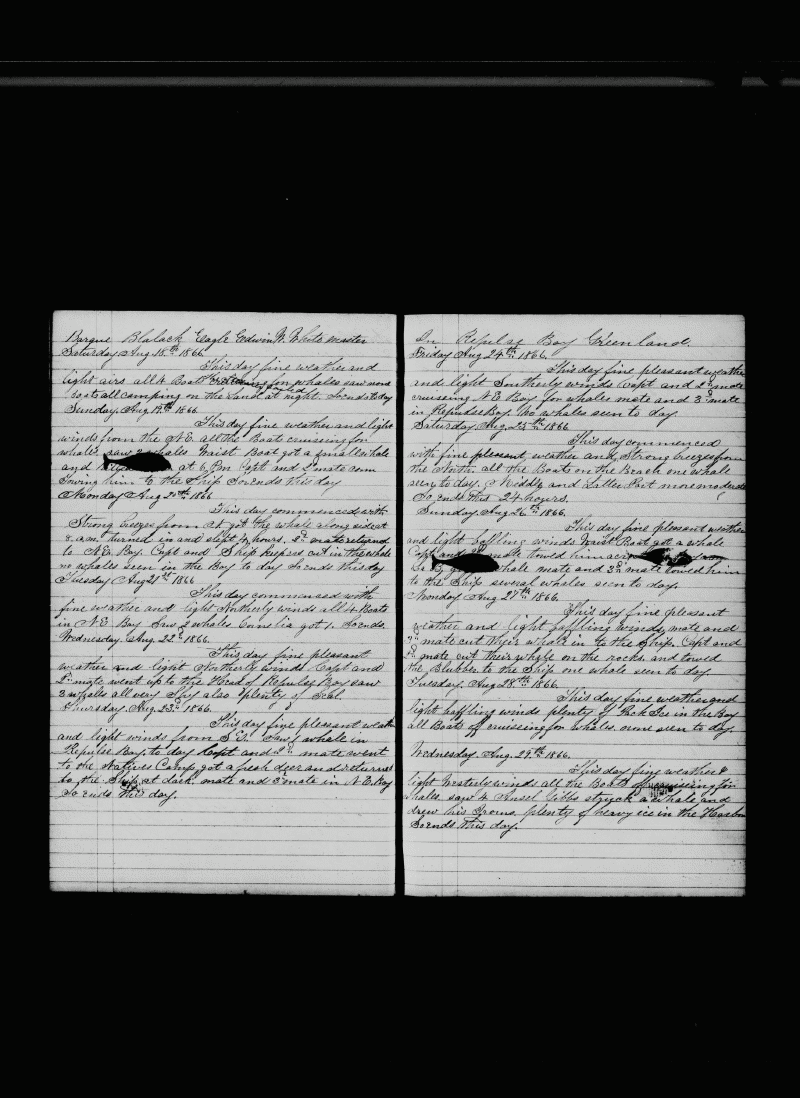 Barque Black Eagle Edwin W. White Master
Saturday Aug 18th 1866
This day fine weather and
light airs all 4 Boats cruising for whales saw none
boats all camping on the land at night. So ends to day
Sunday Aug 19th 1866
This day fine weather and light
winds from the N.E. all the Boats cruseing for
whales, saw 2 whales Waist Boat got a small whale
and at 6 P.m Capt and 2d mate com
Towing him to the Ship So ends this day
Monday Aug 20th 1866
This day commenced with
Strong breezes from got the whale along side at
8 a.m. turned in and slept 4 hours. 2d mate returned
to N.E. Bay Capt and Ship keepers cut in the whale
no whales seen in the Bay to day So ends this day
Tuesday Aug 21st 1866
This day commenced with
fine weather and light Northerly winds all 4 Boats
in N.E. Bay Saw 2 whales Cornelia got 1. So ends.
Wednesday. Aug. 22d 1866.
This day fine pleasant
weather and light Northerly winds Capt and
2d mate went up to the Head of Repulse Bay saw
3 whales all very Spry also plenty of Seal.
Thursday. Aug. 23d 1866.
This day fine pleasant weath
and light winds from Saw 1 whale in
Repulse Bay to day Capt and 2d mate went
to the Natives Camp, got a fresh deer and returned
to the Ship at dark mate and 3d mate in N.E. Bay
So ends this day.
In Repulse Bay Greenland.
Friday Aug 24th 1866.
This day fine pleasant weather
and light Southerly winds Capt and 2d mate
cruseing N.E. Bay for whales mate and 3d mate
in Repulse Bay. No whales seen to day.
Saturday Aug. 25th 1866
This day commenced
with fine pleasant weather and Strong breezes from
the North. all the Boats on the Beach one whale
seen to day. Middle and Latter Part more moderate
So ends this 24 hours.
Sunday Aug 26th 1866.
This day fine pleasant weather
and light baffling winds Waist Boat got a whale
Capt and 2d mate towed him
whale mate and 3d mate towed him
to the Ship several whales seen to day.
Monday Aug 27th 1866.
This day fine pleasant
weather and light baffling winds, mate and
3d mate cut their whale in to the Ship. Capt and
2d mate cut their whale on the rocks, and towed
the Blubber to the Ship one whale seen to day
Tuesday. Aug 28th 1866.
This day fine weather and
light baffling winds plenty of Pack Ice in the Bay
all Boats off cruiseing for whales. none seen to day.
Wednesday. Aug. 29th 1866.
This day fine weather &
light Westerly winds all the Boats cruiseing for
whales saw 4 Ansel Gibbs struck a whale and
drew his Irons. plenty of heavy ice in the Harbor
So ends This day.